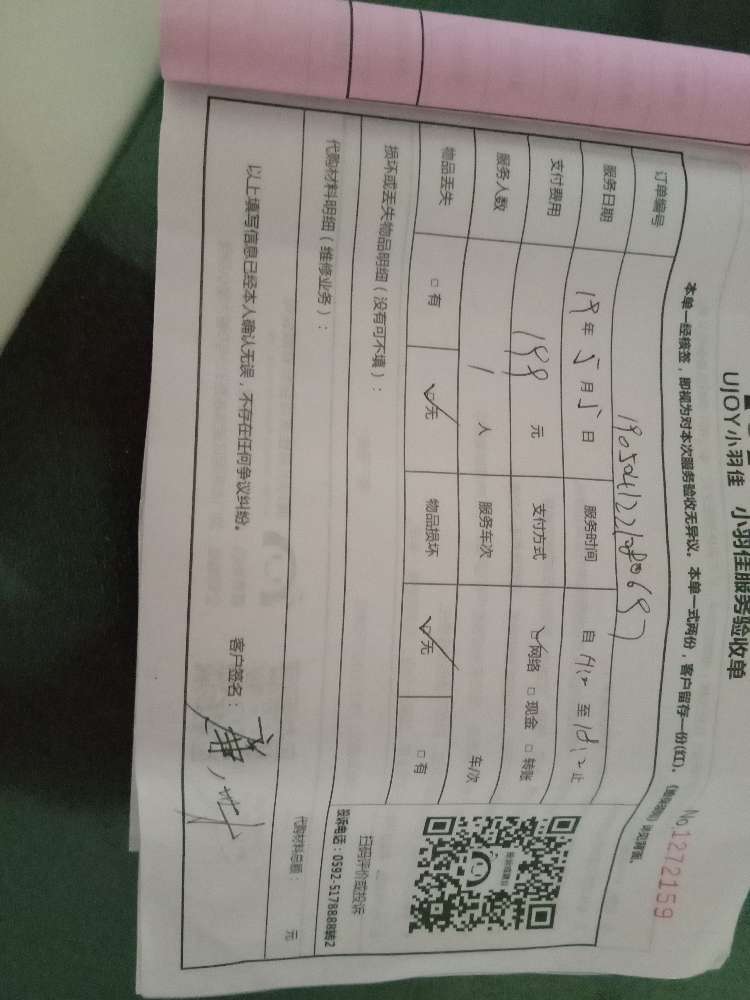 UJOY小羽佳 小羽佳服务验收单
No.1272159
本单一经核签，即视为对本次服务验收无异议。本单一式两份，客户留存一份(红)。
订单编号
服务日期 19年5月5日 服务时间 自 至 止
支付费用 199元 支付方式 ☑网络 □现金 □转账
服务人数 1人 服务车次 车/次
物品丢失 □有 ☑无 物品损坏 ☑无 □有
损坏或丢失物品明细（没有可不填）：
代购材料明细（维修业务）：
代购材料总额： 元
以上填写信息已经本人确认无误，不存在任何争议纠纷。 客户签名：
扫码评价或投诉
投诉电话：0592-5178888转2